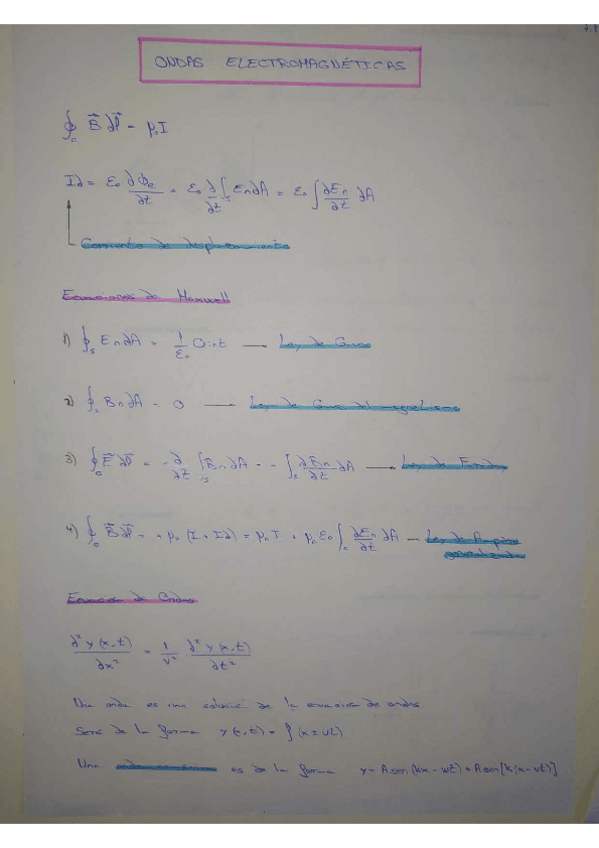 7.1
ONDAS ELECTROMAGNÉTICAS
∮c B⃗ dl⃗ = μ₀I
Id = ε₀ ∂ϕe/∂t = ε₀ ∂/∂t ∫s En dA = ε₀ ∫ ∂En/∂t dA
Corriente de desplazamiento
Ecuaciones de Maxwell
1) ∮s En dA = 1/ε₀ Qint — Ley de Gauss
2) ∮s Bn dA = 0 — Ley de Gauss del magnetismo
3) ∮c E⃗ dl⃗ = -∂/∂t ∫s Bn dA = - ∫s ∂Bn/∂t dA → Ley de Faraday
4) ∮c B⃗ dl⃗ = + μ₀ (I + Id) = μ₀ I + μ₀ ε₀ ∫s ∂En/∂t dA — Ley de Ampère
generalizada
Ecuación de Ondas
∂²y(x,t)/∂x² = 1/v² ∂²y(x,t)/∂t²
Una onda es una solución de la ecuación de ondas
Será de la forma y(x,t) = f(x±vt)
Una onda armónica es de la forma y = A sen (kx - wt) = A sen [k(x - vt)]